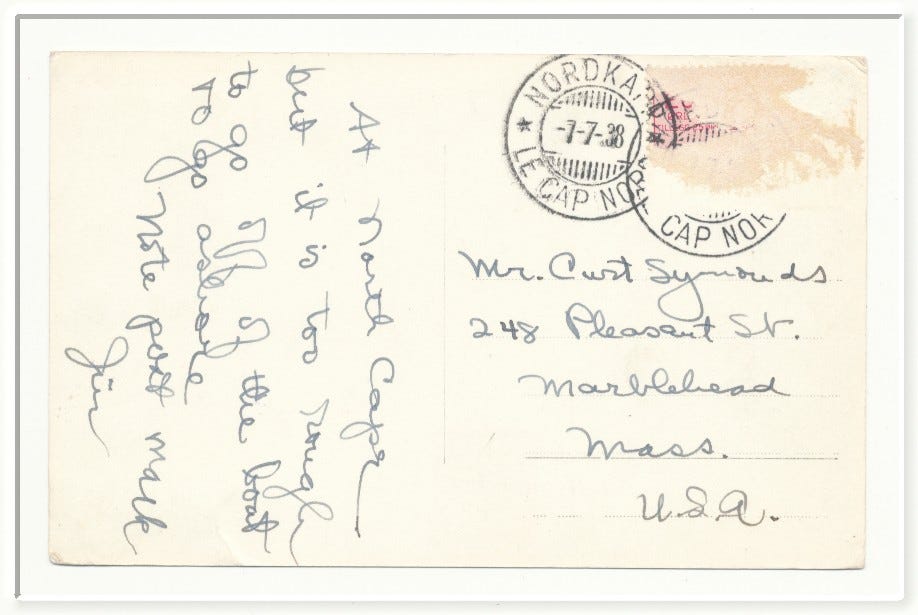 At North Cape
but it is too rough
to go off of the boat
To go ashore
Note post mark
Jim
NORDKAPP
-7-7-38
LE CAP NORD
CAP NOR
Mr. Curt Symonds
248 Pleasant St.
Marblehead
Mass.
U.S.A.